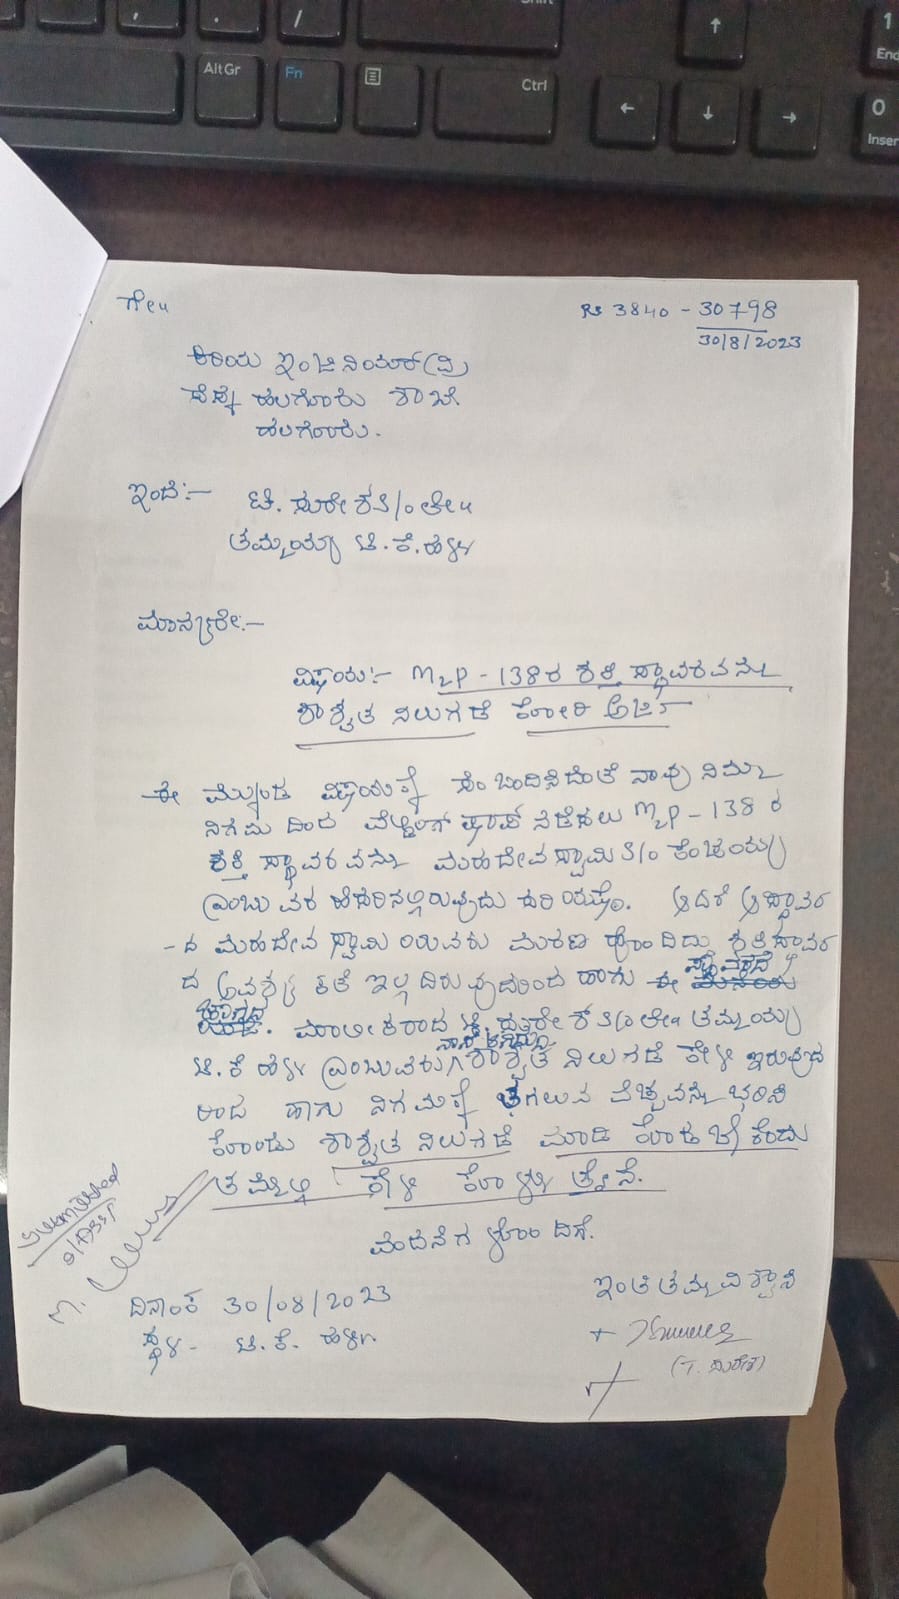 Shift
/
AltGr
Fn
Ctrl
1
End
0
Inser
ಗೇ॥
Rs 3840 - 30798
30/8/2023
ಕಿರಿಯ ಇಂಜಿನಿಯರ್ (ವಿ)
ಹಲಗೂರು ಶಾಖೆ
ಹಲಗೂರು.
ಇಂದ:-
ಟಿ. ಸುರೇಶ S/o ಲೇ॥
ತಮ್ಮಯ್ಯ ಟಿ.ಕೆ.ಹಳ್ಳಿ
ಮಾನ್ಯರೇ:-
ವಿಷಯ:- M2P-138ರ ಶಕ್ತಿ ಸ್ಥಾವರವನ್ನು
ಶಾಶ್ವತ ನಿಲುಗಡೆ ಕೋರಿ ಅರ್ಜಿ
ಈ ಮೇಲ್ಕಂಡ ವಿಷಯಕ್ಕೆ ಸಂಬಂದಿಸಿದಂತೆ ನಾವು ನಿಮ್ಮ
ನಿಗಮ ದಿಂದ ವೆಲ್ಡಿಂಗ್ ಷಾಪ್ ನೆಡೆಸಲು M2P-138 ರ
ಶಕ್ತಿ ಸ್ಥಾವರವನ್ನು ಮಹದೇವಸ್ವಾಮಿ S/o ಕೆಂಚಯ್ಯ
ಎಂಬುವರ ಹೆಸರಿನಲ್ಲಿರುವುದು ಸರಿಯಷ್ಟೆ. ಆದರೆ ಈ ಸ್ಥಾವರ
-ದ ಮಹದೇವ ಸ್ವಾಮಿ ಯವರು ಮರಣ ಹೊಂದಿದ್ದು ಶಕ್ತಿಸ್ಥಾವರ
ದ ಅವಶ್ಯಕತೆ ಇಲ್ಲದಿರುವುದರಿಂದ ಹಾಗು ಈ
ಮಾಲೀಕರಾದ ಟಿ. ಸುರೇಶ್ S/o ಲೇ॥ ತಮ್ಮಯ್ಯ
ಟಿ.ಕೆ ಹಳ್ಳಿ ಎಂಬುವರು ಶಾಶ್ವತ ನಿಲುಗಡೆ ಕೇಳಿ ಇರುವುದ
ರಿಂದ ಹಾಗು ನಿಗಮಕ್ಕೆ ತಗಲುವ ವೆಚ್ಚವನ್ನು ಭರಿಸಿ
ಕೊಂಡು ಶಾಶ್ವತ ನಿಲುಗಡೆ ಮಾಡಿ ಕೊಡಬೇಕೆಂದು
ತಮ್ಮಲ್ಲಿ ಕೇಳಿ ಕೊಳ್ಳುತ್ತೇನೆ.
ವಂದನೆಗಳೊಂದಿಗೆ.
ದಿನಾಂಕ 30/08/2023
ಸ್ಥಳ- ಟಿ.ಕೆ. ಹಳ್ಳಿ
ಇಂತಿ ತಮ್ಮ ವಿಶ್ವಾಸಿ
(T. ಸುರೇಶ)